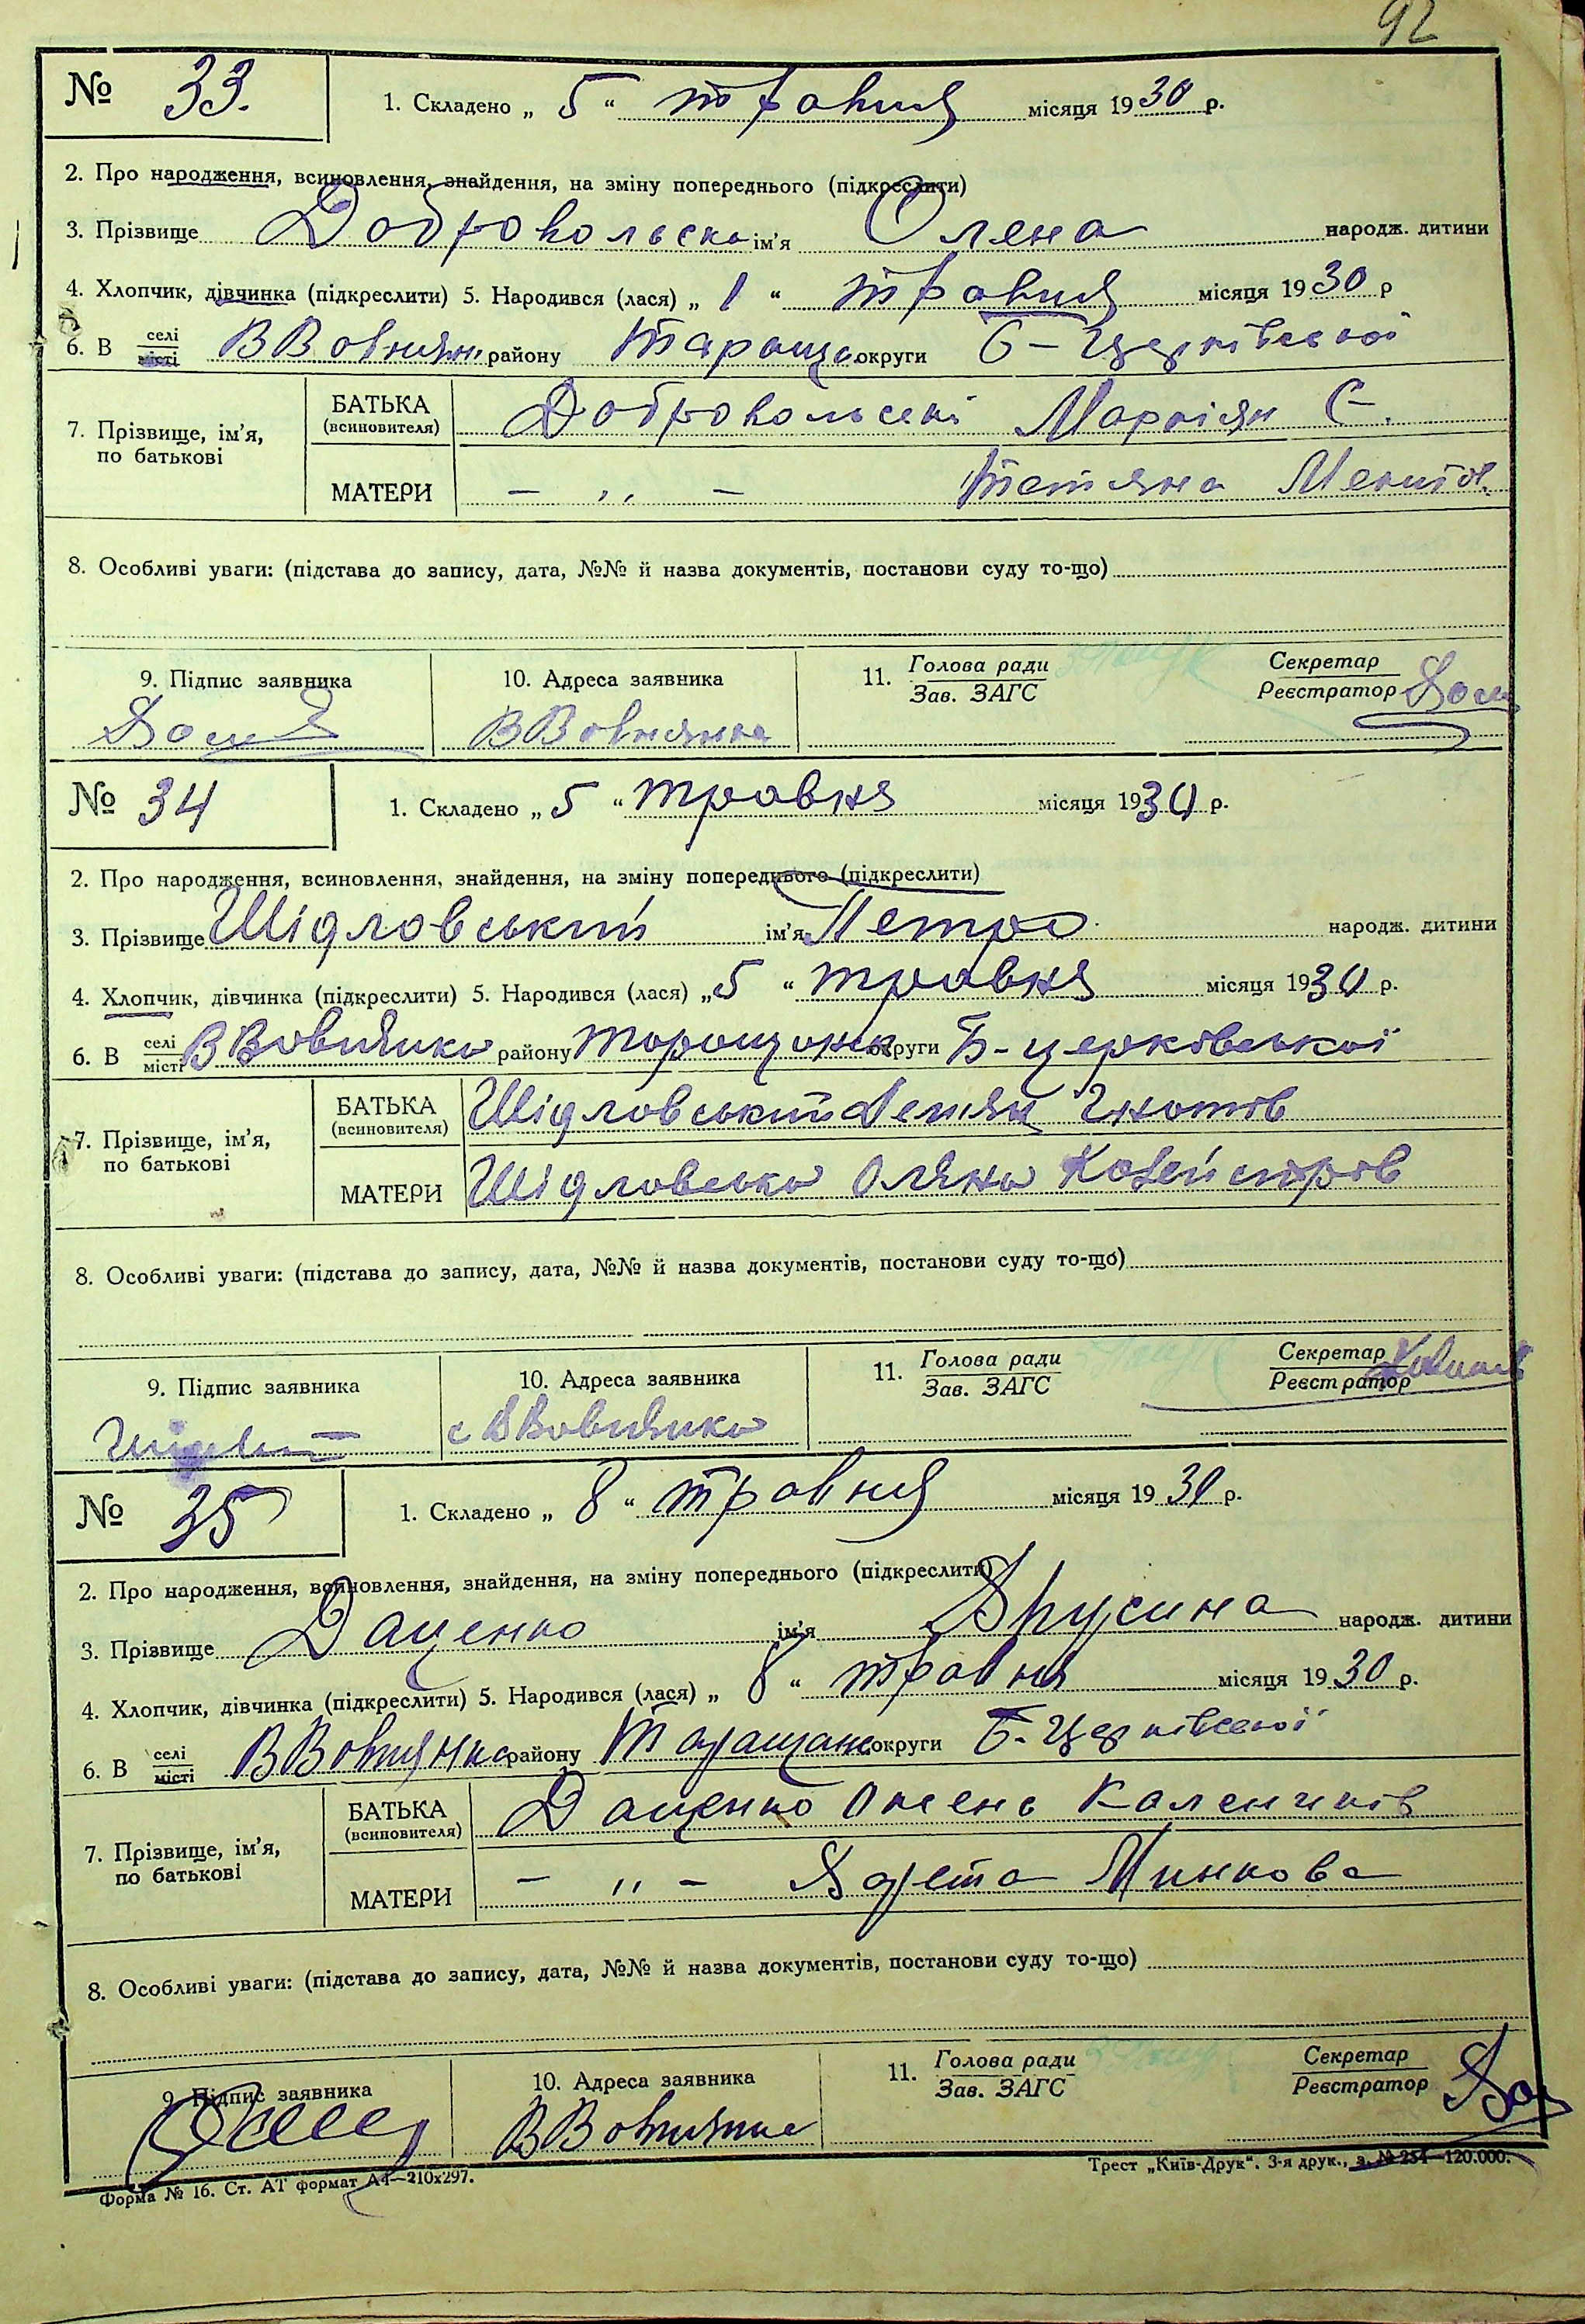 92
№ 33. 1. Складено „ 5 “ травня місяця 1930 р.
2. Про народження, всиновлення, знайдення, на зміну попереднього (підкреслити)
3. Прізвище Добровольська ім’я Олена народж. дитини
4. Хлопчик, дівчинка (підкреслити) 5. Народився (лася) „ 1 “ травня місяця 1930 р
6. В селі/місті ВВовнянк. району Тараща округи Б-Церківської
7. Прізвище, ім’я, по батькові
БАТЬКА (всиновителя) Добровольські Маркіян С.
МАТЕРИ — „ — Тетяна
8. Особливі уваги: (підстава до запису, дата, №№ й назва документів, постанови суду то-що)
9. Підпис заявника 10. Адреса заявника 11. Голова ради/Зав. ЗАГС Секретар/Реєстратор
ВВовнянка
№ 34 1. Складено „ 5 “ травня місяця 1930 р.
2. Про народження, всиновлення, знайдення, на зміну попереднього (підкреслити)
3. Прізвище Шідловський ім’я Петро народж. дитини
4. Хлопчик, дівчинка (підкреслити) 5. Народився (лася) „ 5 “ травня місяця 1930 р.
6. В селі/місті ВВовнянка району Таращанск округи Б-церківської
7. Прізвище, ім’я, по батькові
БАТЬКА (всиновителя) Шідловський Демян
МАТЕРИ Шідловська Оляна
8. Особливі уваги: (підстава до запису, дата, №№ й назва документів, постанови суду то-що)
9. Підпис заявника 10. Адреса заявника 11. Голова ради/Зав. ЗАГС Секретар/Реєстратор
с ВВовнянка
№ 35 1. Складено „ 8 “ травня місяця 1930 р.
2. Про народження, всиновлення, знайдення, на зміну попереднього (підкреслити)
3. Прізвище Даценко ім’я народж. дитини
4. Хлопчик, дівчинка (підкреслити) 5. Народився (лася) „ 8 “ травня місяця 1930 р.
6. В селі/місті ВВовнянка району Таращанс округи Б-Церківської
7. Прізвище, ім’я, по батькові
БАТЬКА (всиновителя) Даценко
МАТЕРИ — „ — Минкова
8. Особливі уваги: (підстава до запису, дата, №№ й назва документів, постанови суду то-що)
9. Підпис заявника 10. Адреса заявника 11. Голова ради/Зав. ЗАГС Секретар/Реєстратор
ВВовнянка
Форма № 16. Ст. АТ формат А4—210х297. Трест „Київ-Друк“. 3-я друк., з. № 254—120.000.